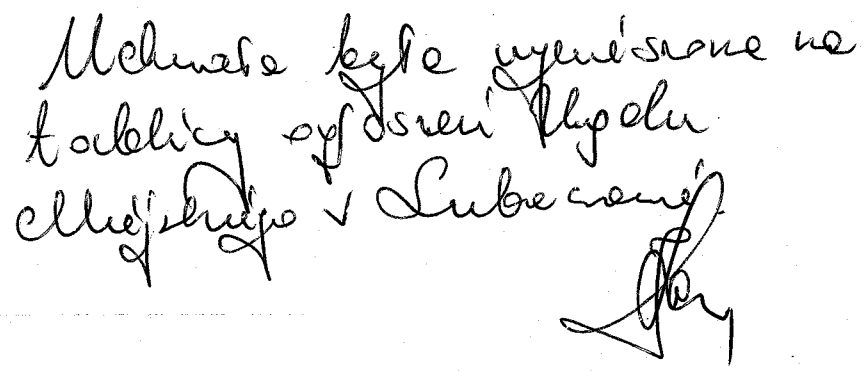 Uchwała była wywieszona na
tablicy ogłoszeń Urzędu
Miejskiego w Lubaczowie.